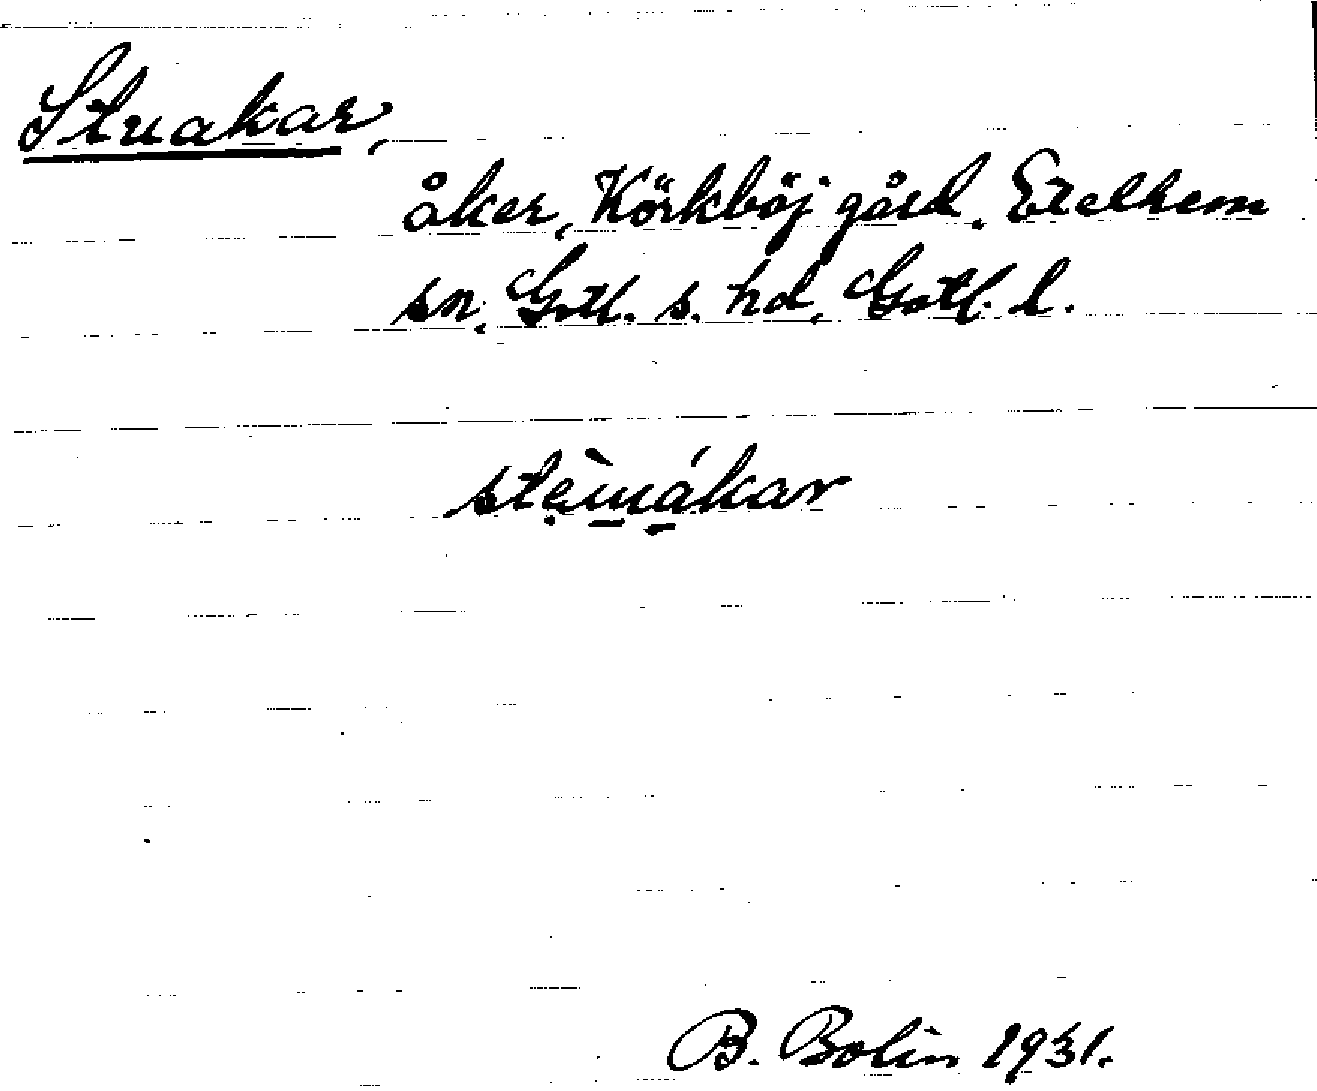 Stuakar,
åker, Körkböj gård, Etelhem
sn, Gotl. s. hd, Gotl. l.
B. Bolin 1931.